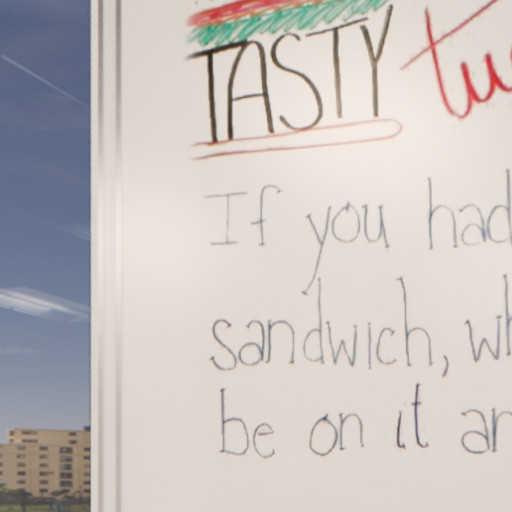 TASTY
If you had
sandwich,
be on it